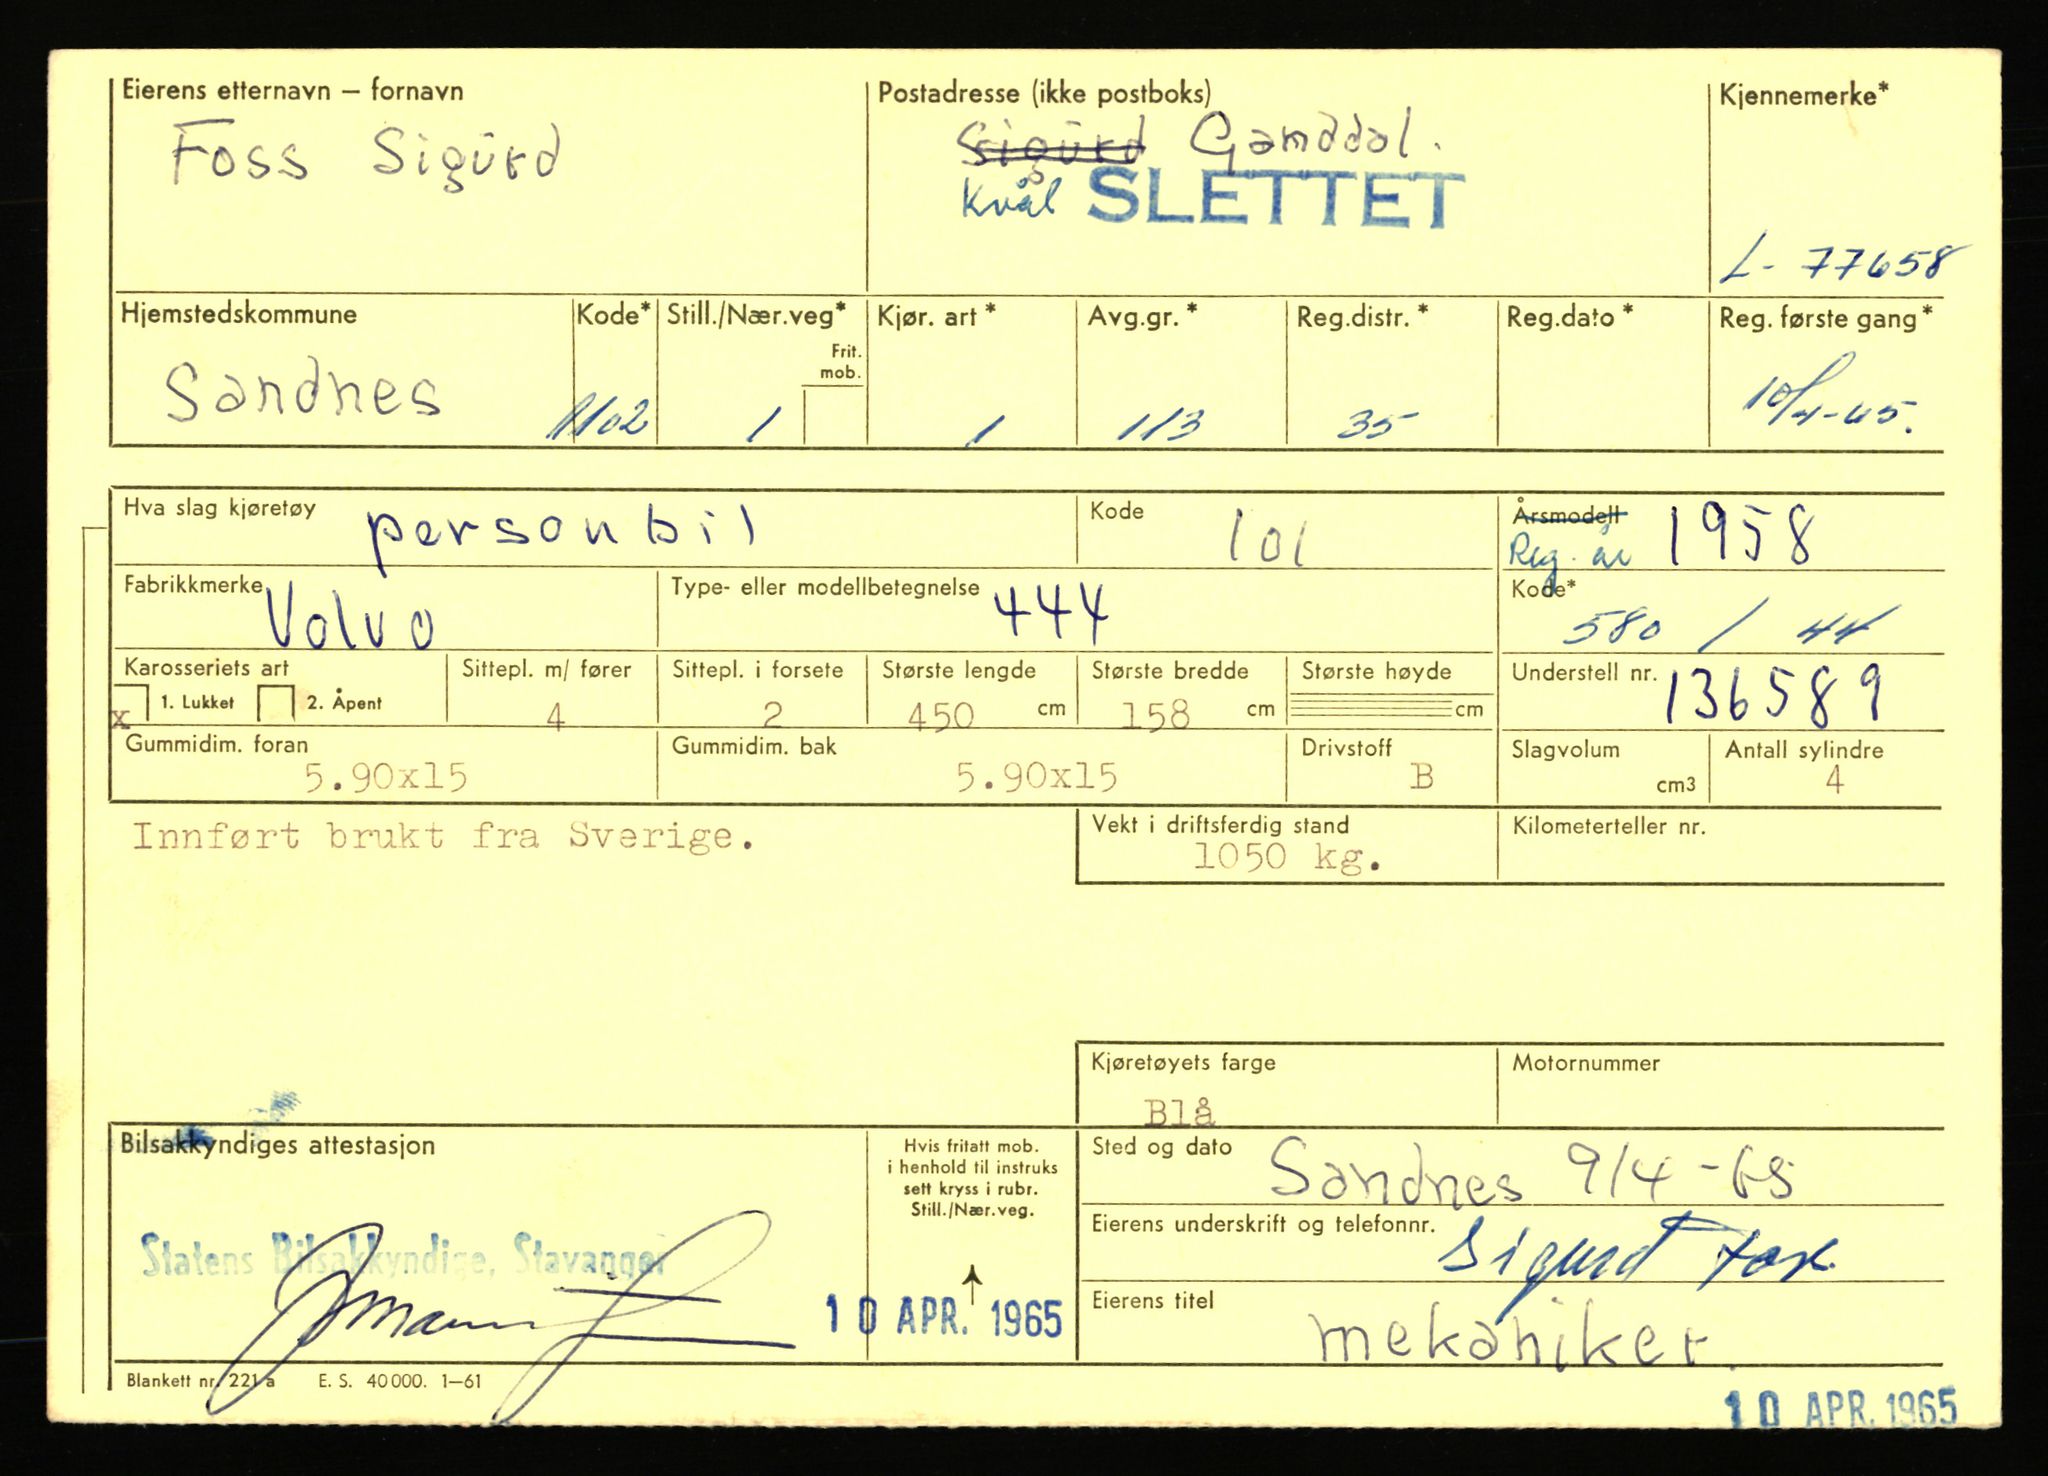 Eierens etternavn – fornavn
Foss Sigurd
Postadresse (ikke postboks)
Sigurd Ganddal.
Kvål SLETTET
Kjennemerke*
L- 77658
Hjemstedskommune
Sandnes
Kode*
1102
Still./Nær.veg*
Frit. mob.
1
Kjør. art *
1
Avg.gr. *
113
Reg.distr. *
35
Reg.dato *
Reg. første gang*
10/4-65.
Hva slag kjøretøy
personbil
Kode
101
Årsmodell
Reg. år 1958
Fabrikkmerke
Volvo
Type- eller modellbetegnelse
444
Kode*
580 / 44
Karosseriets art
x 1. Lukket 2. Åpent
Sittepl. m/ fører
4
Sittepl. i forsete
2
Største lengde
450 cm
Største bredde
158 cm
Største høyde
cm
Understell nr.
136589
Gummidim. foran
5.90x15
Gummidim. bak
5.90x15
Drivstoff
B
Slagvolum
cm3
Antall sylindre
4
Innført brukt fra Sverige.
Vekt i driftsferdig stand
1050 kg.
Kilometerteller nr.
Kjøretøyets farge
Blå
Motornummer
Bilsakkyndiges attestasjon
Statens Bilsakkyndige, Stavanger
Hvis fritatt mob.
i henhold til instruks
sett kryss i rubr.
Still./Nær.veg.
10 APR. 1965
Sted og dato
Sandnes 9/4 -65
Eierens underskrift og telefonnr.
Sigurd Foss.
Eierens titel
mekaniker.
Blankett nr. 221 a E. S. 40 000. 1–61
10 APR. 1965